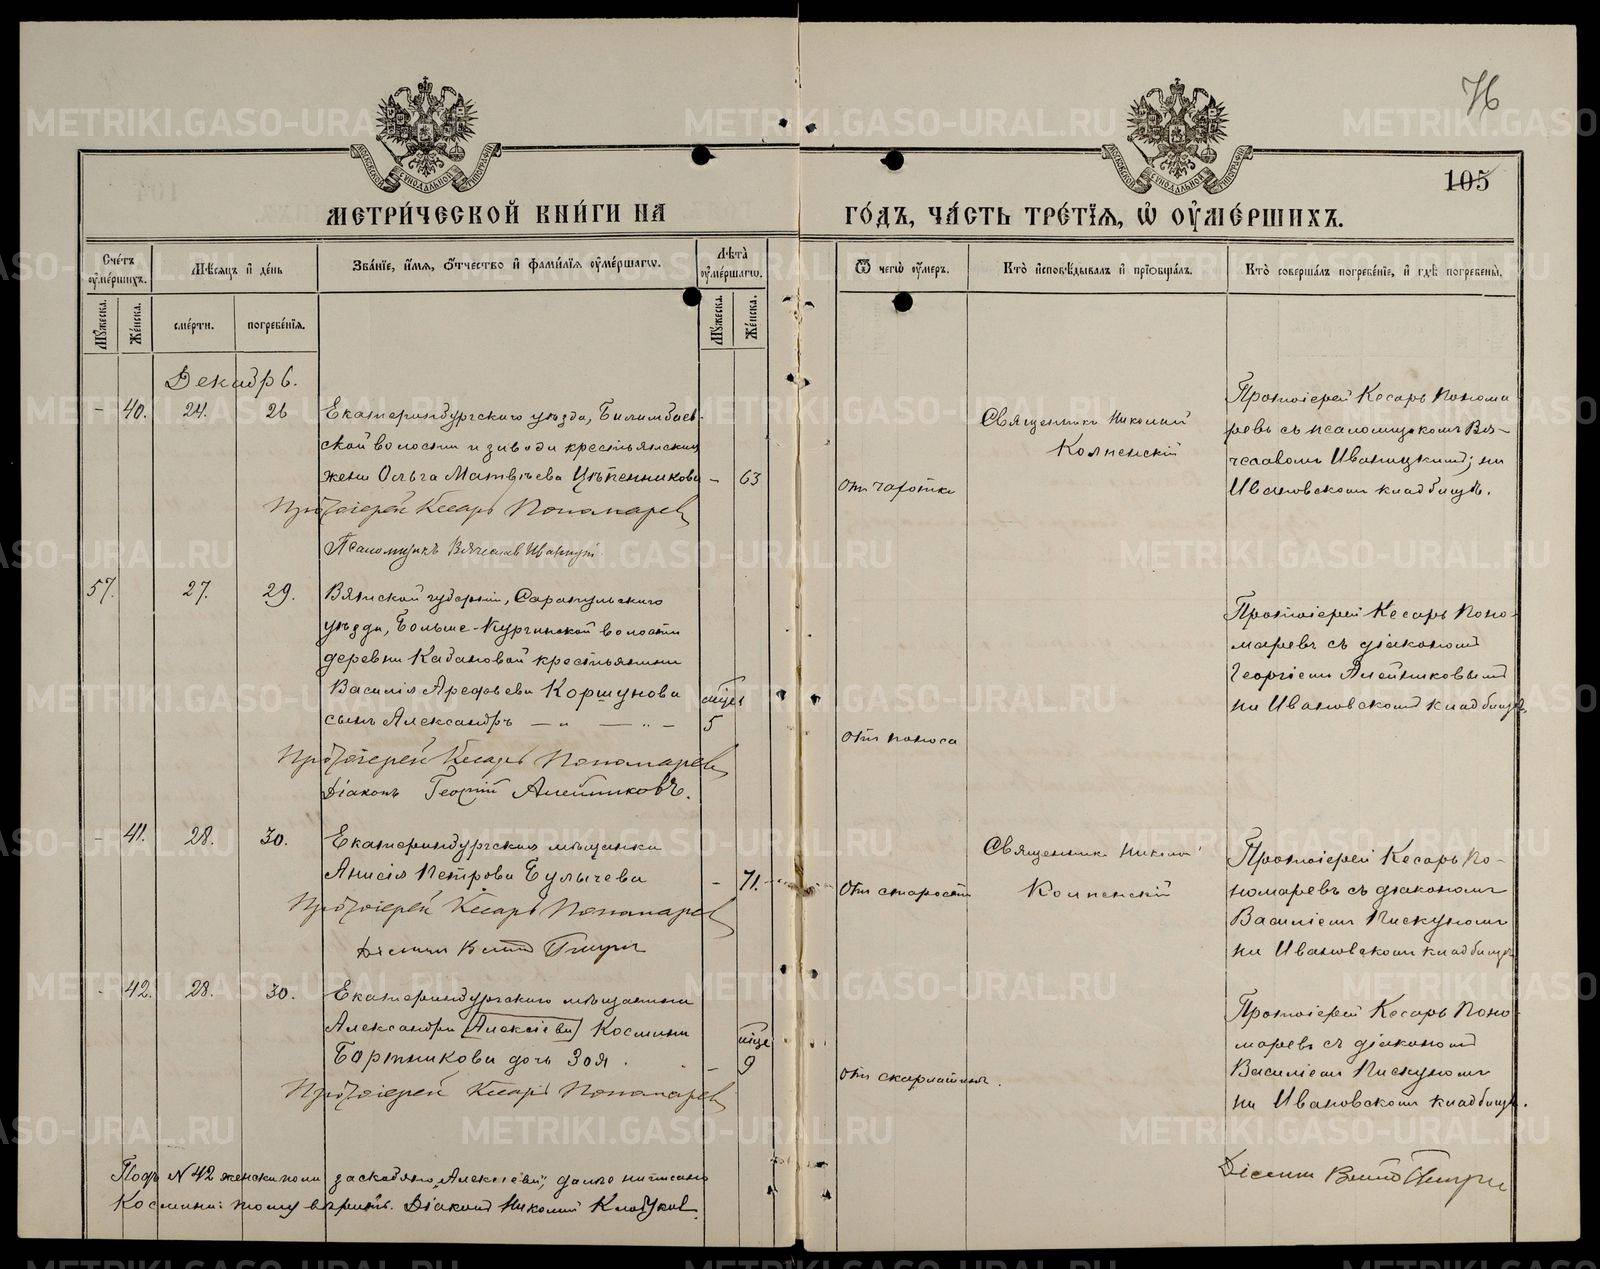 76
105
МОСКОВСКОЙ СѴНОДАЛЬНОЙ ТИПОГРАФІИ
МОСКОВСКОЙ СѴНОДАЛЬНОЙ ТИПОГРАФІИ
МЕТРИ́ЧЕСКОЙ КНИ́ГИ НА
ГО́ДЪ, ЧА́СТЬ ТРЕ́ТЇѦ, Ѡ҆ ОУ҆МЕ́РШИХЪ.
Сче́тъ оу҆ме́ршихъ.
Мѣ́сѧцъ и҆ де́нь
Зва́нїе, и҆́мѧ, ѻ҆́тчество и҆ фами́лїѧ оу҆ме́ршагѡ.
Лѣ́та оу҆ме́ршагѡ.
Ѿ чегѡ̀ оу҆́меръ.
Кто̀ и҆сповѣ́дывалъ и҆ прїѻбща́лъ.
Кто̀ соверша́лъ погребе́нїе, и҆ гдѣ̀ погребены̀.
Мꙋ́жеска.
Же́нска.
сме́рти.
погребе́нїѧ.
Мꙋ́жеска.
Же́нска.
Декабрь.
- 40. 24. 26
Екатеринбургскаго уѣзда, Билимбаев-
ской волости и завода крестьянская
жена Ольга Матвѣева Цѣпенникова - 63
Протоіерей Кесарь Пономарев
Псаломщикъ Вячеслав Иваницкій
отъ чахотки
Священникъ Николай
Колпенскій
Протоіерей Кесарь Понома
ревъ съ псаломщикомъ Вя-
чеславомъ Иваницкимъ; на
Ивановскомъ кладбищѣ.
57. 27. 29.
Вятской губерніи, Сарапульскаго
уѣзда, Больше-Кургинской волости
деревни Кабановой крестьянина
Василія Арефьева Коршунова
сынъ Александръ
мѣсяц
5
Протоіерей Кесарь Пономарев
Діаконъ Георгій Алейниковъ.
отъ поноса
Протоіерей Кесарь Поно-
маревъ съ діакономъ
Георгіемъ Алейниковымъ
на Ивановскомъ кладбищѣ.
- 41. 28. 30.
Екатеринбургская мѣщанка
Анисія Петрова Булычева - 71.
Протоіерей Кесарь Пономарев
отъ старости
Священникъ Николай
Колпенскій
Протоіерей Кесарь По-
номаревъ съ діакономъ
Василіемъ Пискуномъ
на Ивановскомъ кладбищѣ
- 42. 28. 30.
Екатеринбургскаго мѣщанина
Александра (Алексіева) Космина
Бортникова дочь Зоя.
мѣсяц
- 9
Протоіерей Кесарь Пономарев
отъ скарлатины.
Протоіерей Кесарь Поно-
маревъ съ діакономъ
Василіемъ Пискуномъ
на Ивановскомъ кладбищѣ.
Подъ N 42 женск. пола заскоблено "Алексіева", далѣе написано
Космина: тому вѣрить. Діаконъ Николай Клобуков
METRIKI.GASO-URAL.RU